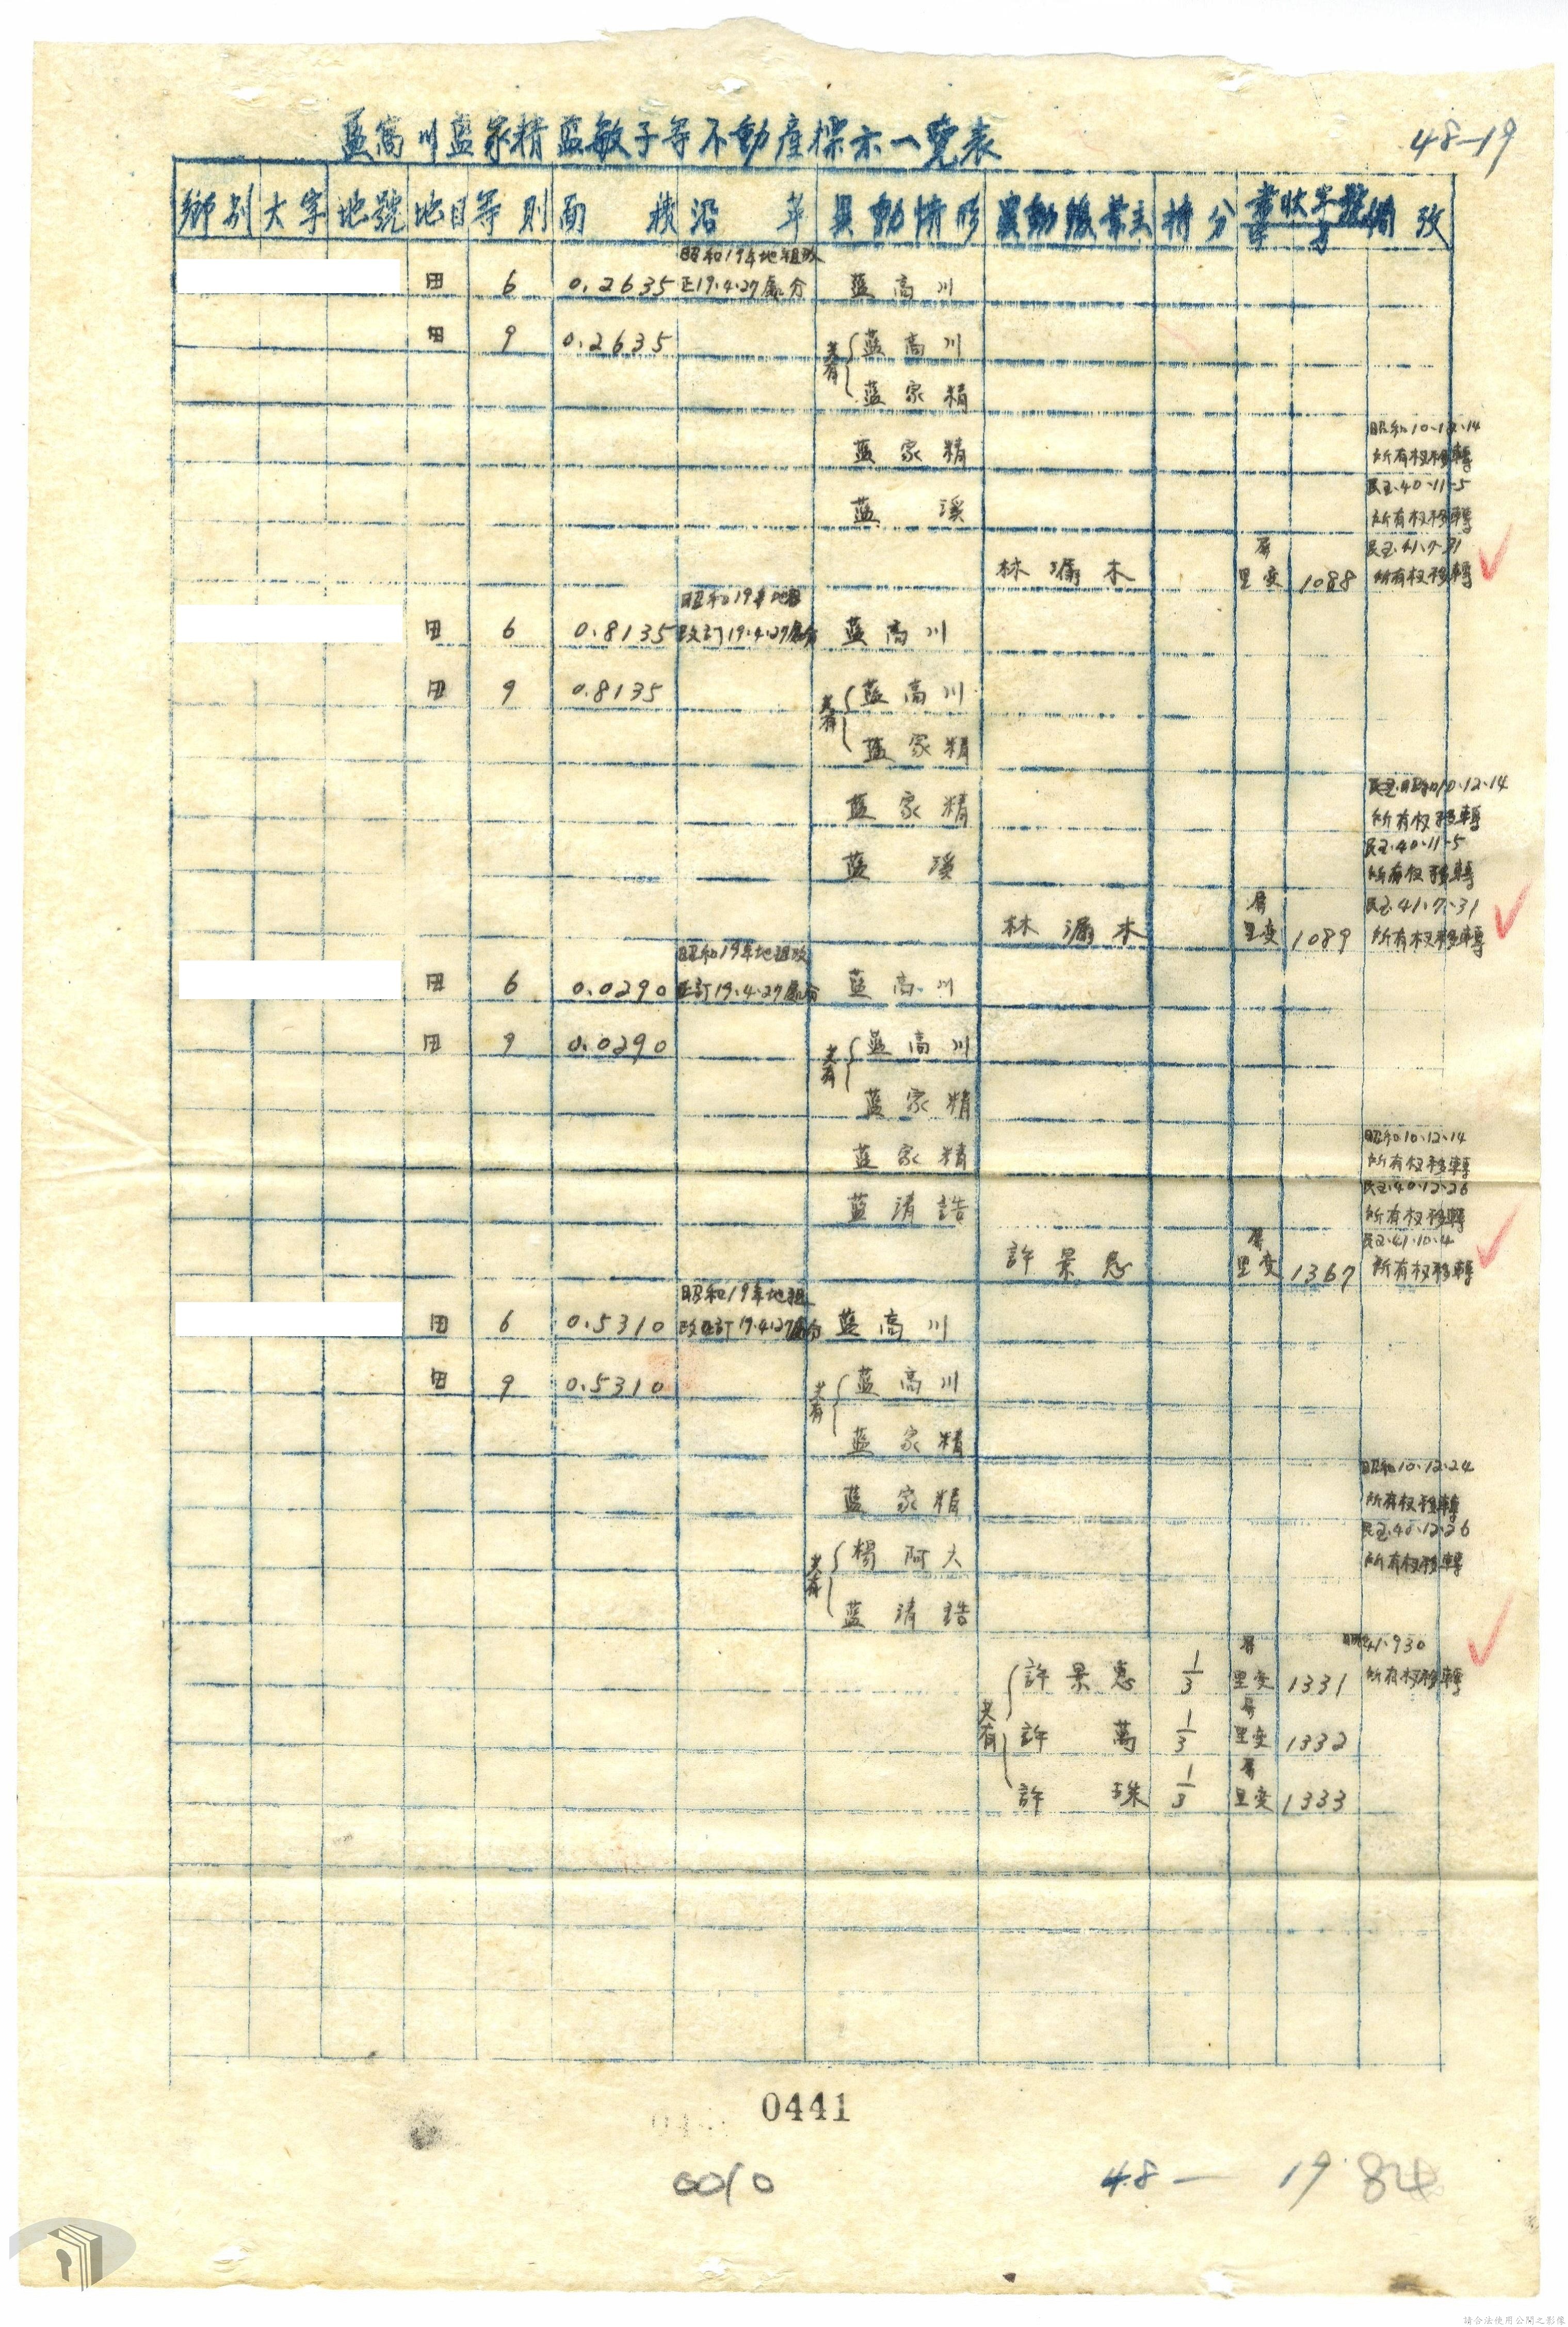 藍高川藍家精藍敏子等不動產標示一覽表
48—19
鄉別 大字 地號 地目 等則 面積 沿革 異動情形 異動後業主 持分 書狀字號 備攷
昭和19年地租改
田 6 0.2635 正19.4.27處分 藍高川
田 9 0.2635 共有 藍高川
藍家精
昭和10.12.14
藍家精 所有权移轉
民国.40.11.5
藍溪 所有权移轉
屏 民国.41.7.31
林漏木 里变 1088 所有权移轉
昭和19年地租
田 6 0.8135 改訂19.4.27處分 藍高川
田 9 0.8135 共有 藍高川
藍家精
昭和10.12.14
藍家精 所有权移轉
民国.40.11.5
藍溪 所有权移轉
屏 民国.41.7.31
林漏木 里变 1089 所有权移轉
昭和19年地租改
田 6 0.0290 正訂19.4.27處分 藍高川
田 9 0.0290 共有 藍高川
藍家精
昭和10.12.14
藍家精 所有权移轉
民国.40.12.26
藍清誥 所有权移轉
屏 民国.41.10.4
許景惠 里变 1367 所有权移轉
昭和19年地租
田 6 0.5310 改正訂19.4.27處分 藍高川
田 9 0.5310 共有 藍高川
藍家精
昭和10.12.24
藍家精 所有权移轉
民国.40.12.26
共有 楊阿大 所有权移轉
藍清誥
屏 41.930
共有 許景惠 1/3 里变 1331 所有权移轉
屏
許萬 1/3 里变 1332
屏
許珠 1/3 里变 1333
0441
0010
48— 19 84
請合法使用公開之影像